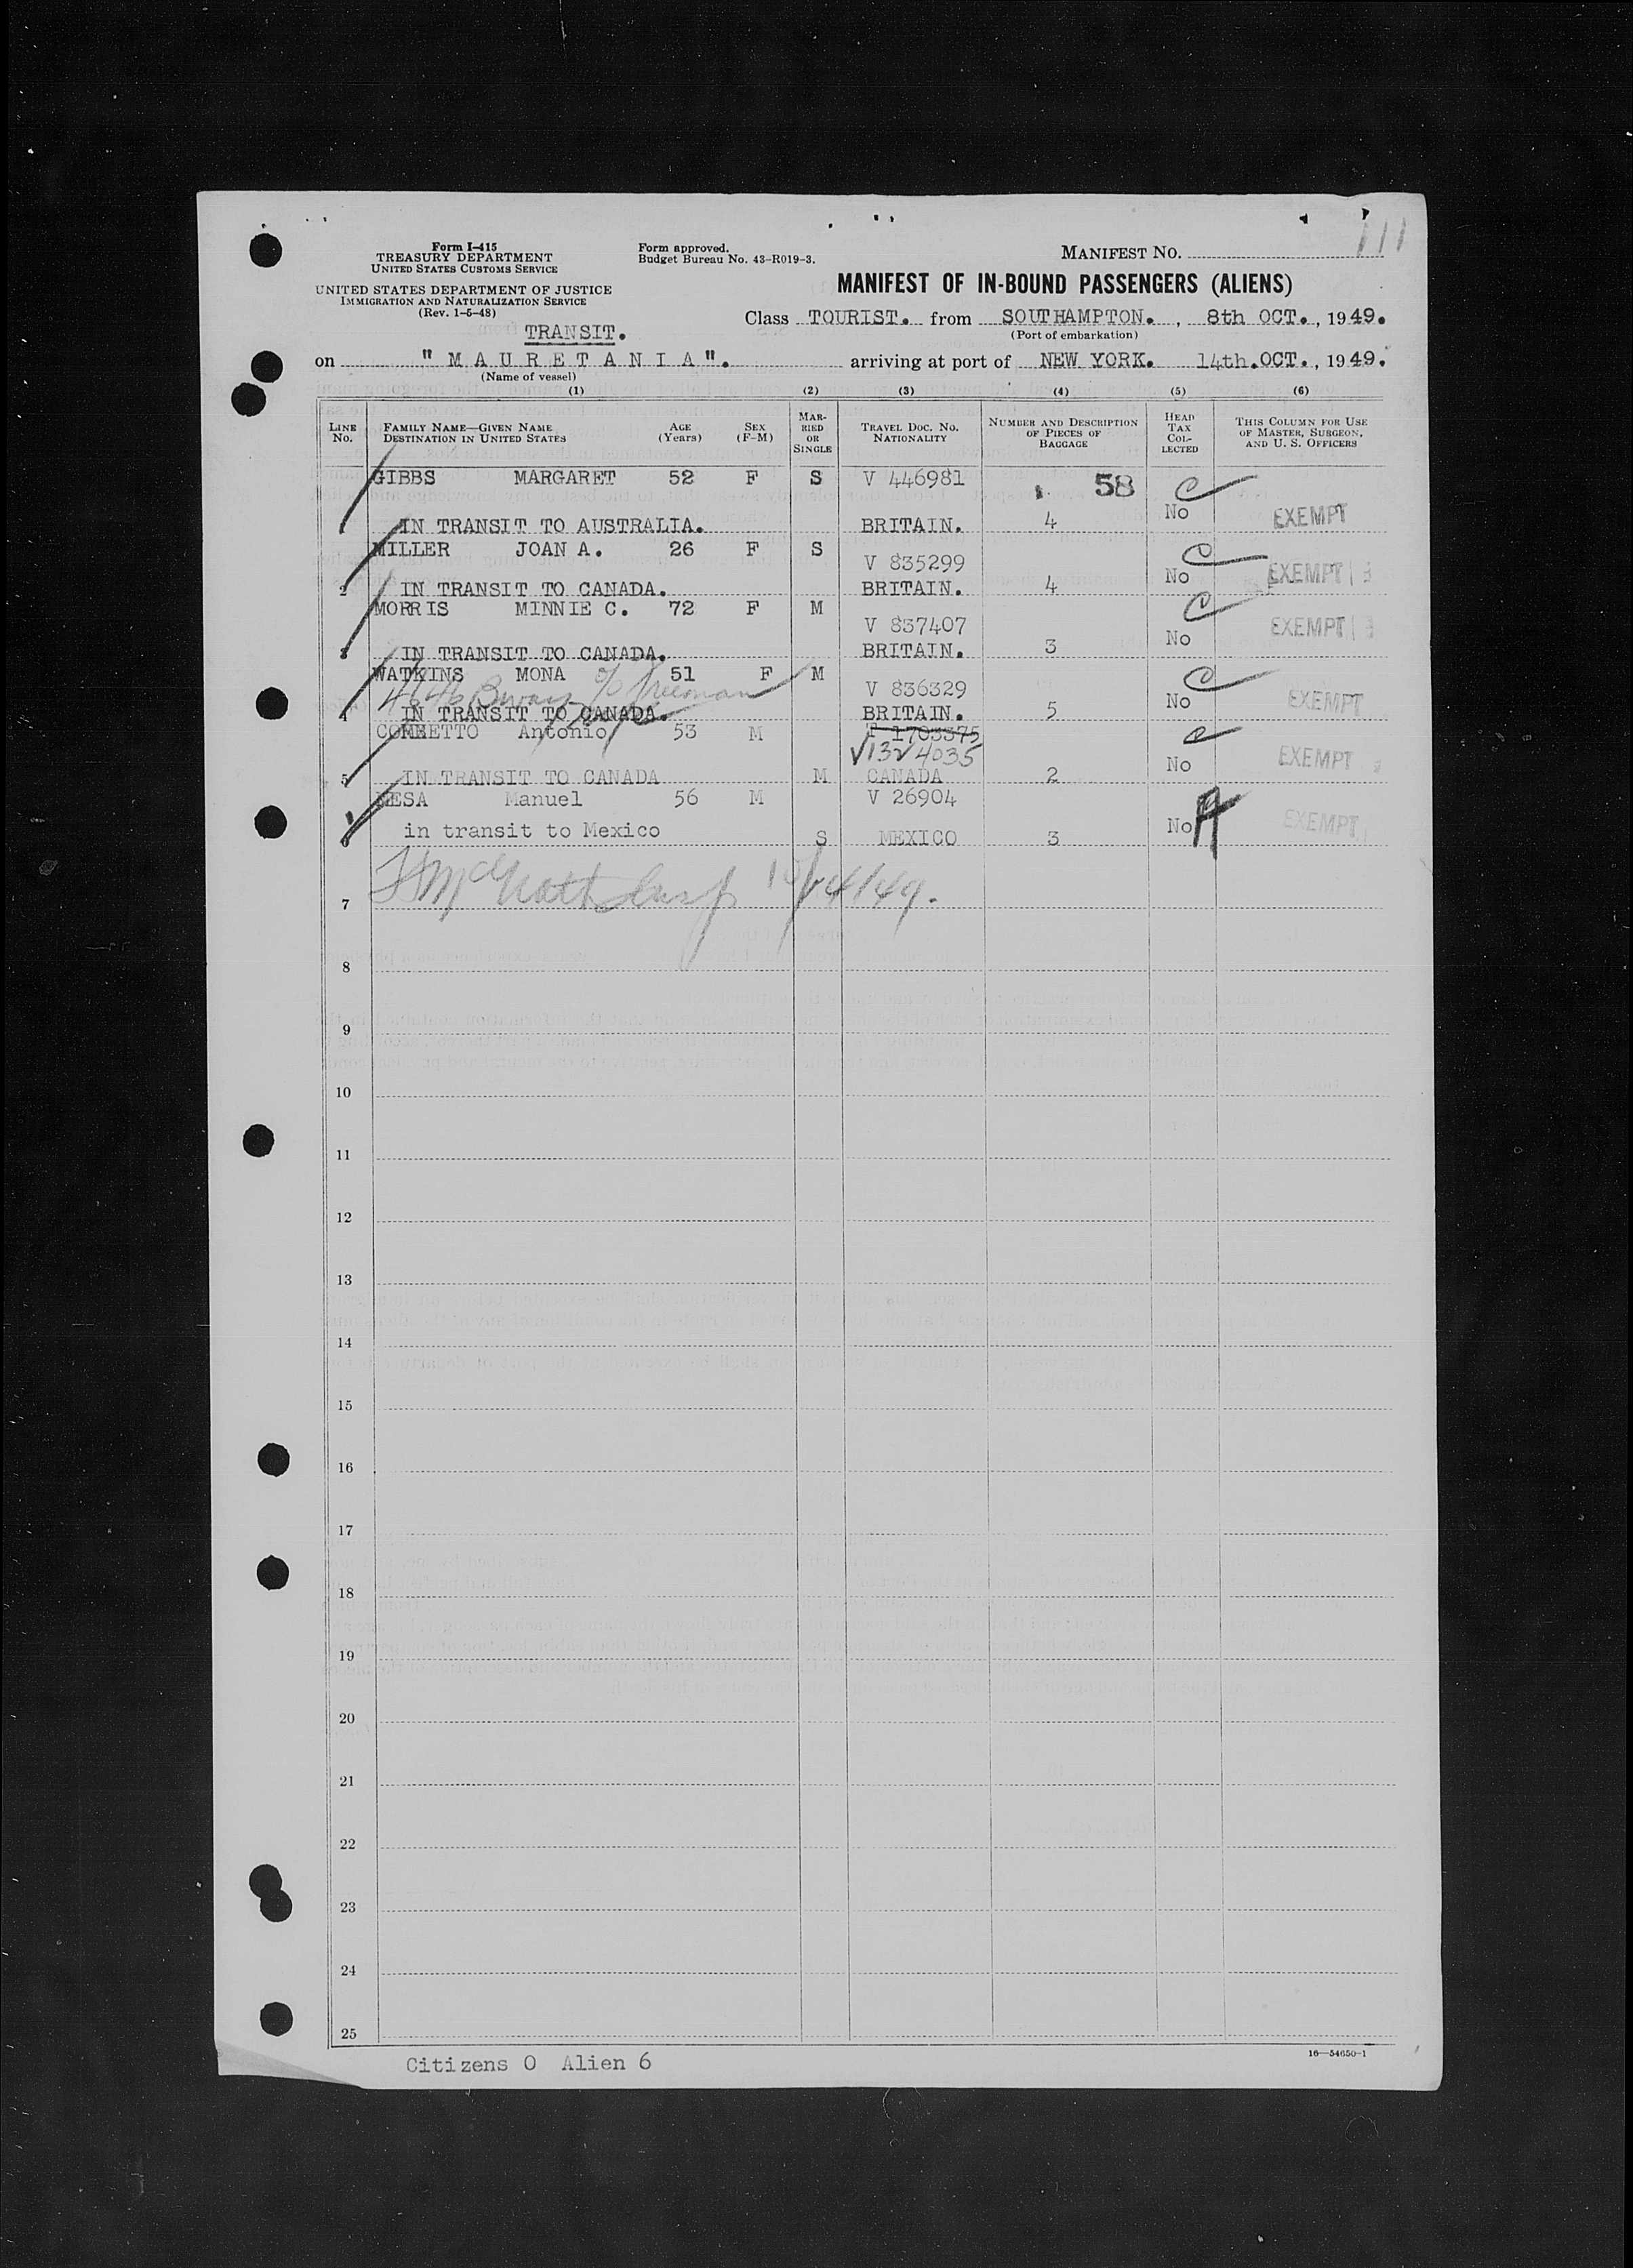 111
Form I-415
TREASURY DEPARTMENT
UNITED STATES CUSTOMS SERVICE
UNITED STATES DEPARTMENT OF JUSTICE
IMMIGRATION AND NATURALIZATION SERVICE
(Rev. 1-5-48)
Form approved.
Budget Bureau No. 43-R019-3.
MANIFEST NO.
MANIFEST OF IN-BOUND PASSENGERS (ALIENS)
TRANSIT.
Class TOURIST. from SOUTHAMPTON. , 8th OCT. , 1949.
(Port of embarkation)
on "MAURETANIA". arriving at port of NEW YORK. 14th.OCT. , 1949.
(Name of vessel)
(1) (2) (3) (4) (5) (6)
LINE No. FAMILY NAME—GIVEN NAME DESTINATION IN UNITED STATES AGE (Years) SEX (F-M) MARRIED OR SINGLE TRAVEL DOC. NO. NATIONALITY NUMBER AND DESCRIPTION OF PIECES OF BAGGAGE HEAD TAX COLLECTED THIS COLUMN FOR USE OF MASTER, SURGEON, AND U. S. OFFICERS
GIBBS MARGARET 52 F S V 446981 58 C
1 IN TRANSIT TO AUSTRALIA. BRITAIN. 4 No EXEMPT
MILLER JOAN A. 26 F S V 835299 C
2 IN TRANSIT TO CANADA. BRITAIN. 4 No EXEMPT
MORRIS MINNIE C. 72 F M V 837407 C
3 IN TRANSIT TO CANADA. BRITAIN. 3 No EXEMPT
WATKINS MONA 51 F M V 836329 C
4646 c/o Freeman
4 IN TRANSIT TO CANADA. BRITAIN. 5 No EXEMPT
CORRETTO Antonio 53 M 1703375 C
V1324035
5 IN TRANSIT TO CANADA M CANADA 2 No EXEMPT
MESA Manuel 56 M V 26904 A
6 in transit to Mexico S MEXICO 3 No EXEMPT
10/14/49.
7
8
9
10
11
12
13
14
15
16
17
18
19
20
21
22
23
24
25
Citizens 0 Alien 6
16—54650-1